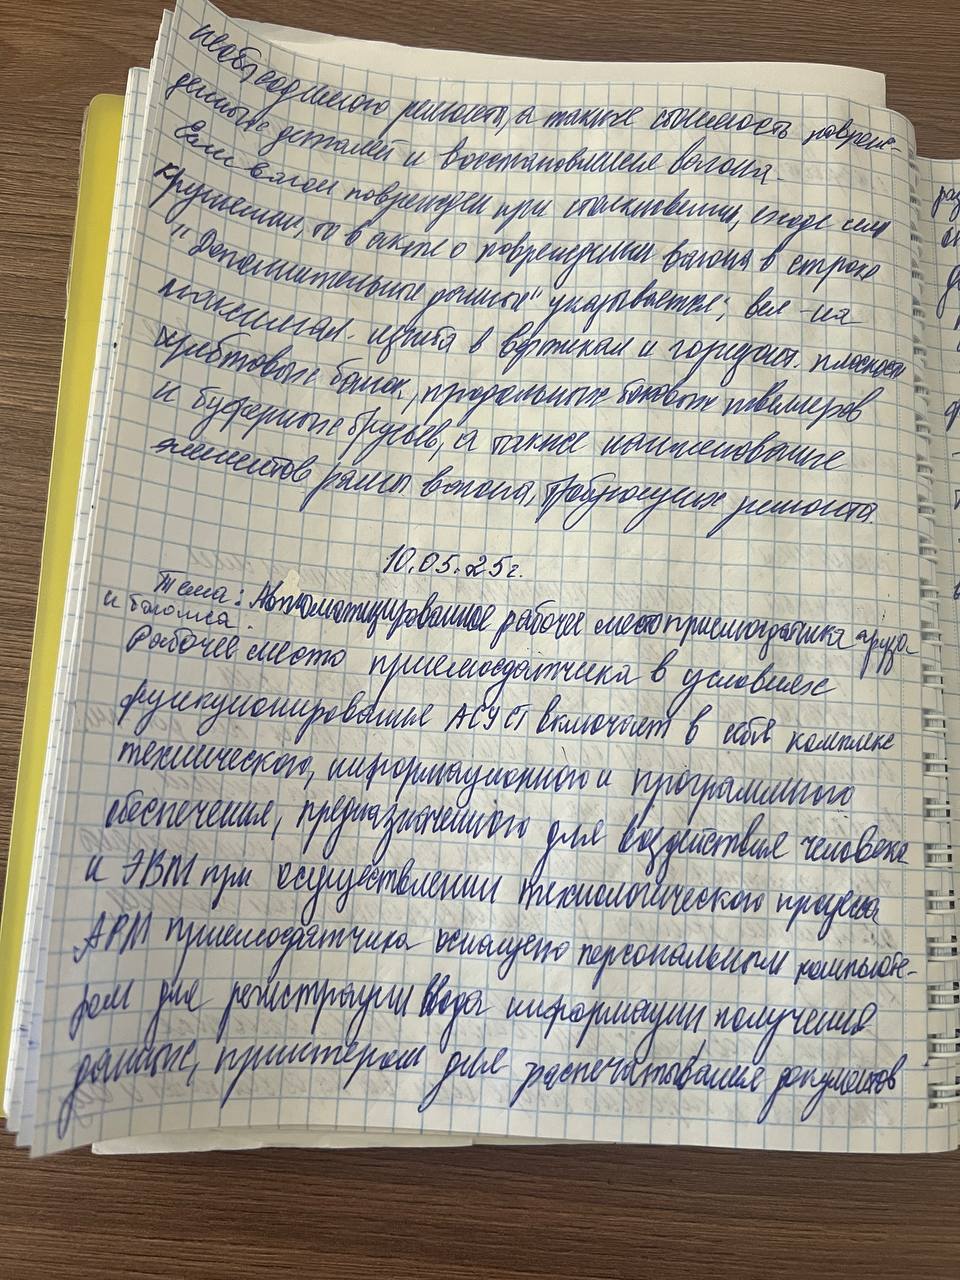 необходимого ремонта, а также стоимость повреж-
денных деталей и восстановления вагона.
Если вагон поврежден при столкновении, сходе или
крушении, то в акте о повреждении вагона в строке
"Дополнительные данные" указывается; вел-на
максимал. изгиба в вертикал и горизонт. плоскости
хребтовых балок, продольных боковых швеллеров
и буферных брусьев, а также наименование
элементов рамы вагона, требующих ремонта.
10.05.25г.
Тема: Автоматизированное рабочее место приемосдатчика груза
и багажа.
Рабочее место приемосдатчика в условиях
функционирования АСУ СТ включает в себя комплекс
технического, информационного и программного
обеспечения, предназначенного для воздействия человека
и ЭВМ при осуществлении технологического процесса
АРМ приемосдатчика оснащено персональным компьюте-
ром для регистрации ввода информации получения
данных, принтером для распечатывания документов